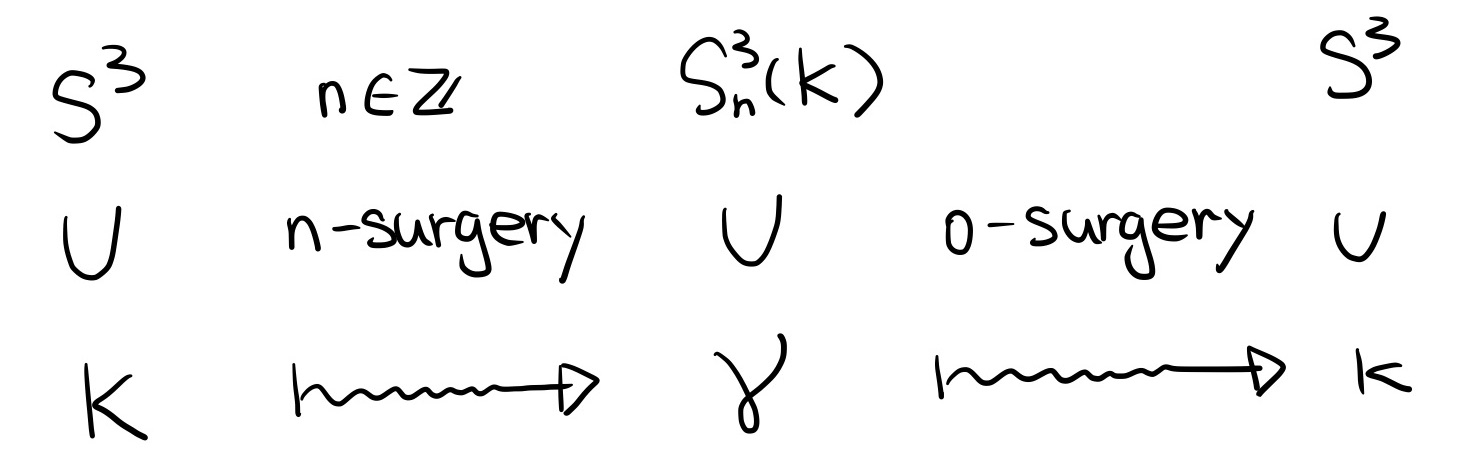 S³ n∈ℤ S³ₙ(K) S³
∪ n-surgery ∪ 0-surgery ∪
K γ K